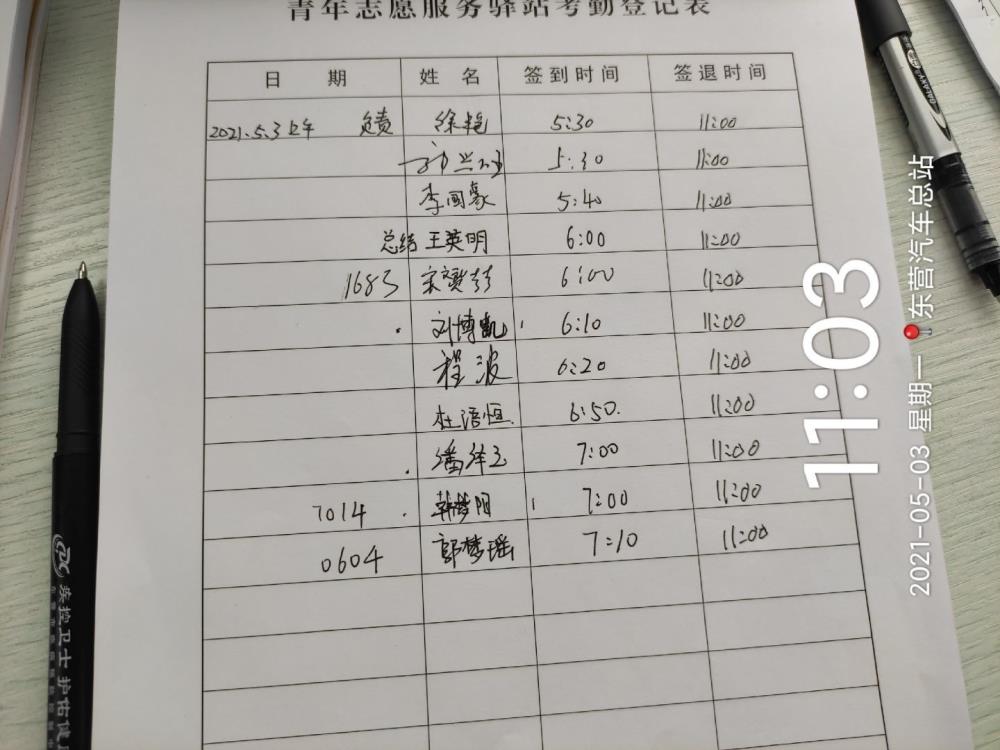 青年志愿服务驿站考勤登记表
日 期 姓 名 签到时间 签退时间
2021.5.3上午 负责 徐艳 5:30 11:00
5:30 11:00
李国豪 5:40 11:00
总结 王英明 6:00 11:00
1683 宋 6:00 11:00
刘博凯 6:10 11:00
程波 6:20 11:00
杜语恒 6:50. 11:00
潘 玉 7:00 11:00
7014 韩梦阳 7:00 11:00
0604 郭梦瑶 7:10 11:00
11:03
2021-05-03 星期一 东营汽车总站
CDC 疾控卫士 护佑健
GALAXY